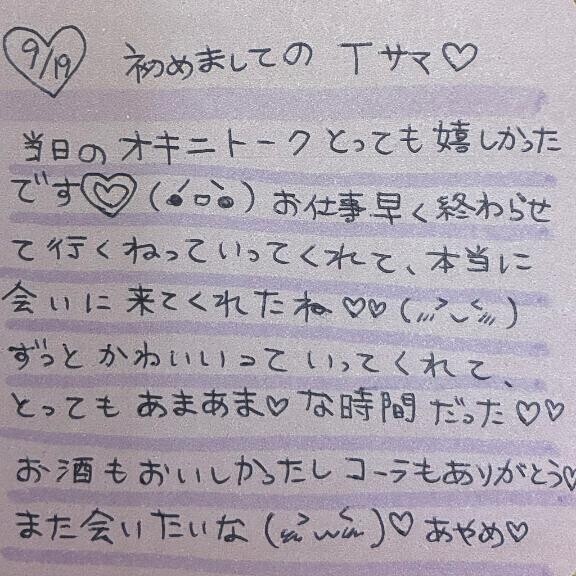 9/19 初めましての Tサマ♡
当日のオキニトークとっても嬉しかった
です♡(´•ロ•`)お仕事早く終わらせ
て行くねっていってくれて、本当に
会いに来てくれたね♡♡(⸝⸝⸝>◡<⸝⸝⸝)
ずっとかわいいっていってくれて、
とってもあまあま♡な時間だった♡♡
お酒もおいしかったしコーラもありがとう♡
また会いたいな(⸝⸝>ω<⸝⸝)♡あやめ♡